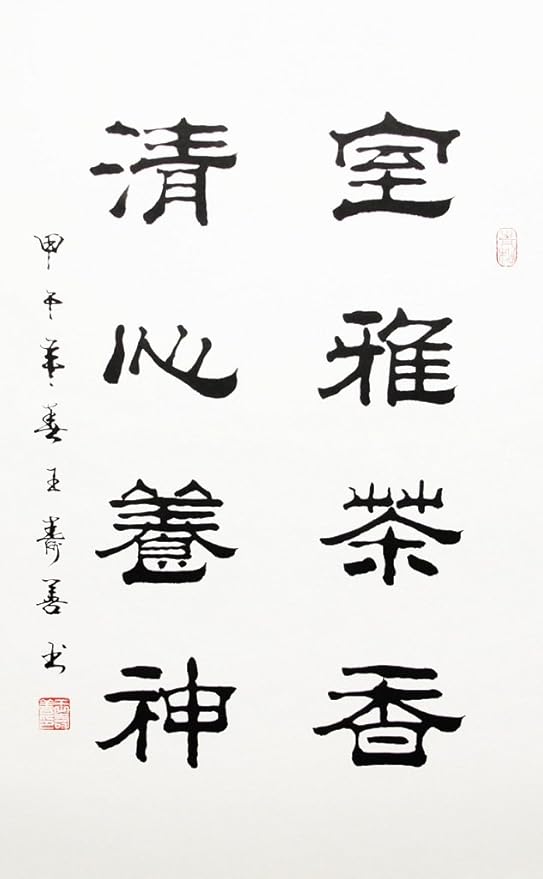 室雅茶香
清心養神
甲午春王寿善书